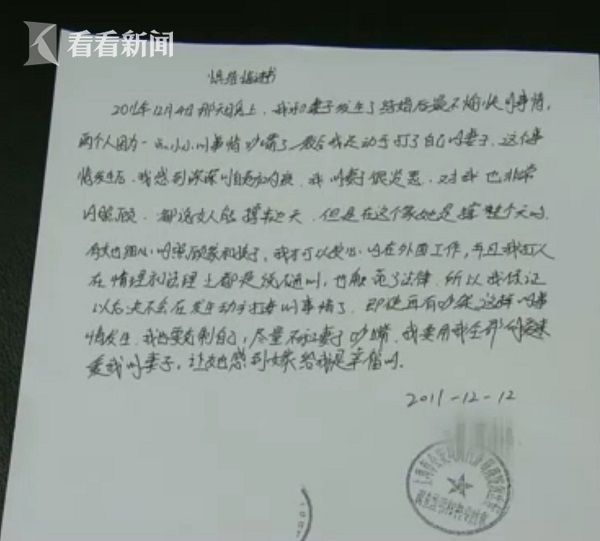 看看新闻
婚姻保证书
2011年12月4日那天晚上,我和妻子发生了结婚后最不愉快的事情,
两个人因为一点小小的事情吵嘴了 最后我是动手打了自己的妻子,这个事
情发生后,我感到深深的自责和内疚,我的妻子很贤惠,对我也非常
的照顾,都说女人能撑半边天,但是在这个家她是撑整个天的,
细心的照顾家和孩子,我才可以安心的在外面工作,而且我打人
在情理和法理上都是说不通的,也触犯了法律,所以我保证
以后决不会在发生动手打妻的事情了,即使再有吵架这样的事
情发生,我也要克制自己,尽量不和妻子吵嘴,我要用我全部的
爱我的妻子,让她感到嫁给我是幸福的。
2011-12-12